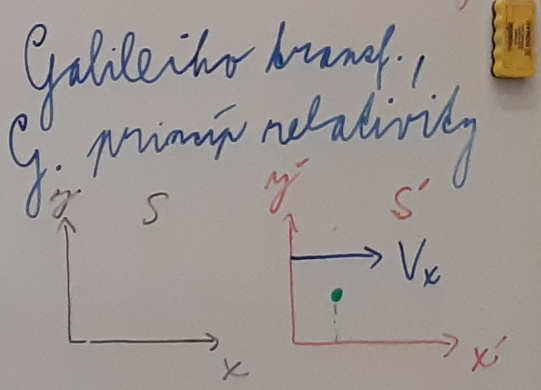 Galileiho transf.,
G. princíp relativity
y S y' S'
Vx
x x'